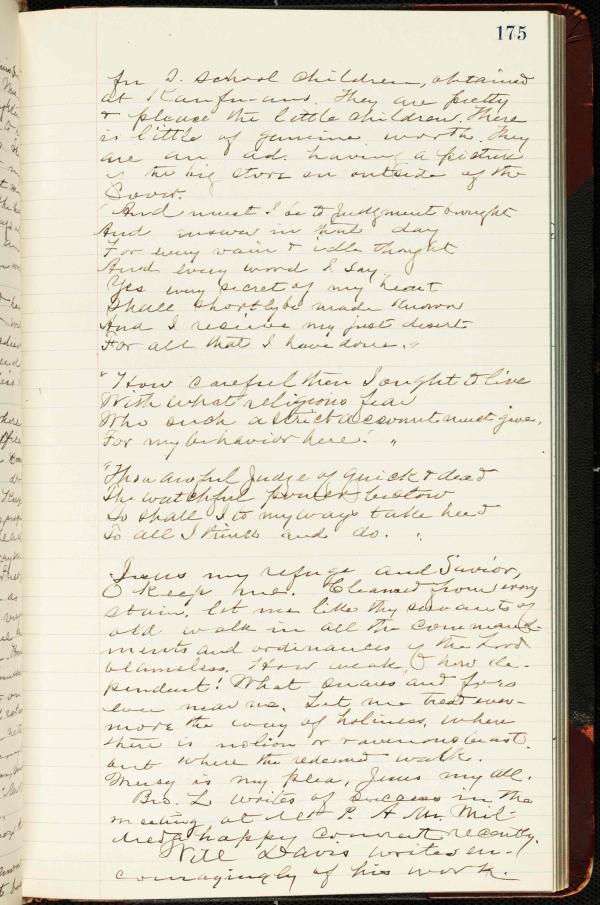 175
for S. School Children, obtained
at Kaufmans. They are pretty
& please the little children. There
is little of genuine worth. They
are an ad. having a picture
of the big store on outside of the
Cover.
"And must I be to Judgment brought
And answer in that day
For every vain & idle thought
And every word I say.
Yes every secret of my heart
Shall shortly be made known
And I receive my just desert
For all that I have done."
"How careful then I ought to live
With what religious fear
Who such a strict account must give,
For my behavior here."
"Thou awful Judge of quick & dead
The watchful power bestow
So shall I to my ways take heed
To all I think and do."
Jesus my refuge and Savior,
O keep me. Cleansed from every
stain, let me like thy servants of
old walk in all the command-
ments and ordinances of the Lord
blameless. How weak, & how de-
pendent! What snares and foes
ever near me. Let me tread ever-
more the way of holiness, where
there is no lion or ravenous beast.
but where the redeemed walk.
Mercy is my plea, Jesus my all.
Bro. L writes of success in the
meeting at Mt P. A Mr. Mil-
dred a happy convert recently.
Will Davis writes en-
couragingly of his work.